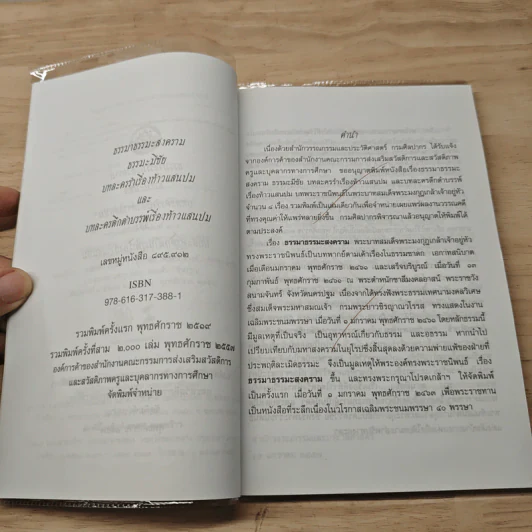 ธรรมาธรรมะสงคราม
ธรรมะมีชัย
บทละครรำเรื่องท้าวแสนปม
และ
บทละครดึกดำบรรพ์เรื่องท้าวแสนปม
เลขหมู่หนังสือ ๘๙๕.๙๑๒
ISBN
978-616-317-388-1
รวมพิมพ์ครั้งแรก พุทธศักราช ๒๕๑๙
รวมพิมพ์ครั้งที่สาม ๒,๐๐๐ เล่ม พุทธศักราช ๒๕๕๗
องค์การค้าของสำนักงานคณะกรรมการส่งเสริมสวัสดิการ
และสวัสดิภาพครูและบุคลากรทางการศึกษา
จัดพิมพ์จำหน่าย
คำนำ
เนื่องด้วยสำนักวรรณกรรมและประวัติศาสตร์ กรมศิลปากร ได้รับแจ้ง
จากองค์การค้าของสำนักงานคณะกรรมการส่งเสริมสวัสดิการและสวัสดิภาพ
ครูและบุคลากรทางการศึกษา ขออนุญาตพิมพ์หนังสือเรื่องธรรมาธรรมะ
สงคราม ธรรมะมีชัย บทละครรำเรื่องท้าวแสนปม และบทละครดึกดำบรรพ์
เรื่องท้าวแสนปม บทพระราชนิพนธ์ในพระบาทสมเด็จพระมงกุฎเกล้าเจ้าอยู่หัว
จำนวน ๔ เรื่อง รวมพิมพ์เป็นเล่มเดียวกันเพื่อจำหน่ายเผยแพร่ผลงานวรรณคดี
ที่ทรงคุณค่าให้แพร่หลายยิ่งขึ้น กรมศิลปากรพิจารณาแล้วอนุญาตให้พิมพ์ได้
ตามประสงค์
เรื่อง ธรรมาธรรมะสงคราม พระบาทสมเด็จพระมงกุฎเกล้าเจ้าอยู่หัว
ทรงพระราชนิพนธ์เป็นบทพากย์ตามเค้าเรื่องในธรรมชาดก เอกาทสนิบาต
เมื่อเดือนมกราคม พุทธศักราช ๒๔๖๑ และเสร็จบริบูรณ์ เมื่อวันที่ ๑๓
กุมภาพันธ์ พุทธศักราช ๒๔๖๑ ณ พระตำหนักชาลีมงคลอาสน์ พระราชวัง
สนามจันทร์ จังหวัดนครปฐม เนื่องจากได้ทรงฟังพระธรรมเทศนามงคลวิเศษ
ซึ่งสมเด็จพระมหาสมณเจ้า กรมพระยาวชิรญาณวโรรส ทรงแสดงในงาน
เฉลิมพระชนมพรรษา เมื่อวันที่ ๑ มกราคม พุทธศักราช ๒๔๖๑ โดยหลักธรรมนี้
มีมูลเหตุที่เป็นจริง เป็นอุทาหรณ์เกี่ยวกับธรรม และอธรรม หากนำไป
เปรียบเทียบกับมหาสงครามในยุโรปซึ่งสิ้นสุดลงด้วยความพ่ายแพ้ของฝ่ายที่
ประพฤติละเมิดธรรมะ จึงเป็นมูลเหตุให้พระองค์ทรงพระราชนิพนธ์ เรื่อง
ธรรมาธรรมะสงคราม ขึ้น และทรงพระกรุณาโปรดเกล้าฯ ให้จัดพิมพ์
เป็นครั้งแรก เมื่อวันที่ ๑ มกราคม พุทธศักราช ๒๔๖๓ เพื่อพระราชทาน
เป็นหนังสือที่ระลึกเนื่องในวโรกาสเฉลิมพระชนมพรรษา ๔๐ พรรษา